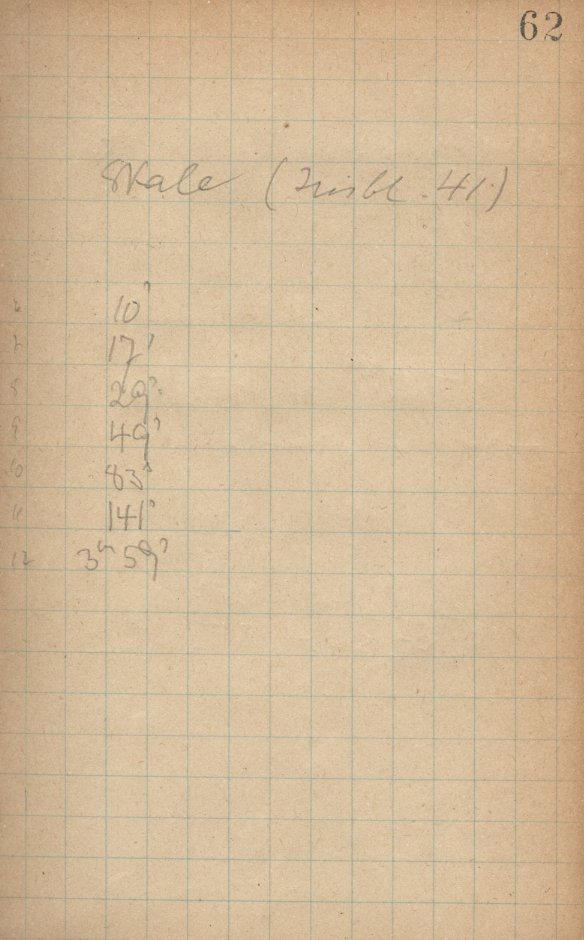 62
Skale ( 41)
6 10'
7 17'
8 29'
9 49'
10 83'
11 141'
12 3h 59'